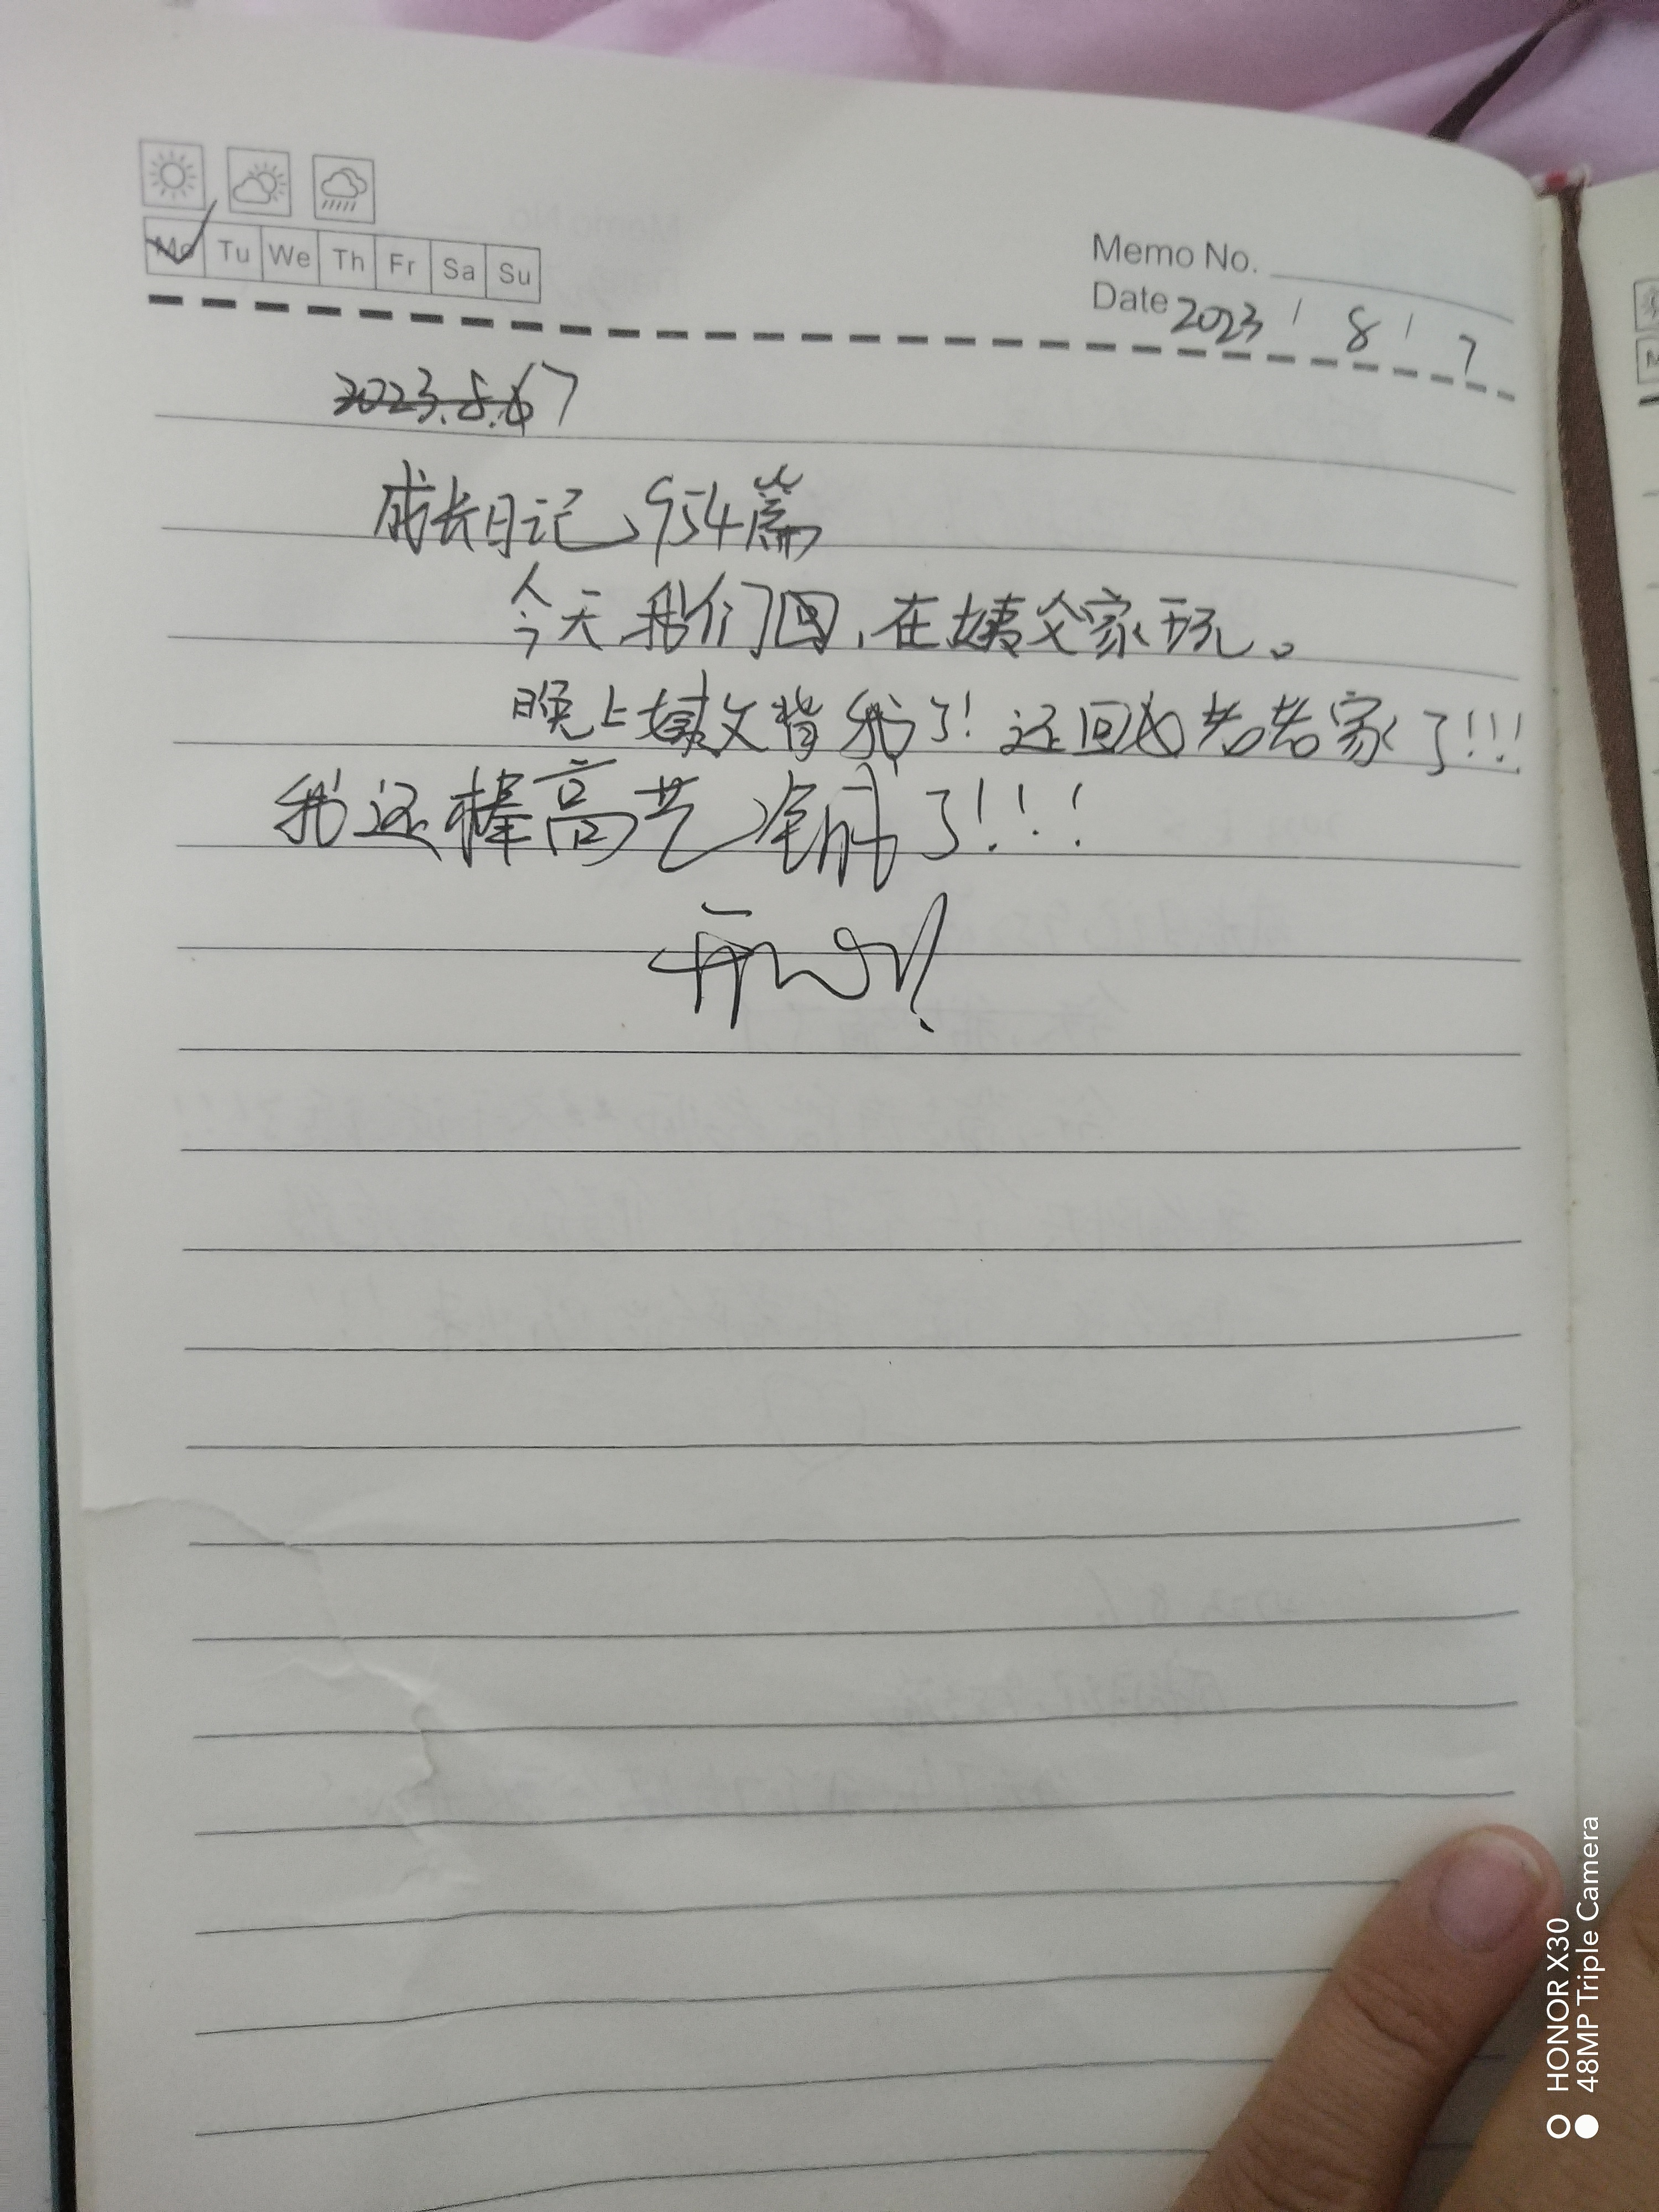 Mo Tu We Th Fr Sa Su
Memo No.
Date 2023 / 8 / 7
2023.8.67
成长日记,954篇
今天我们回,在姨父家玩。
晚上姨父背我了!还回老老家了!!!
我还棒高艺了!!!
开心!
HONOR X30
48MP Triple Camera